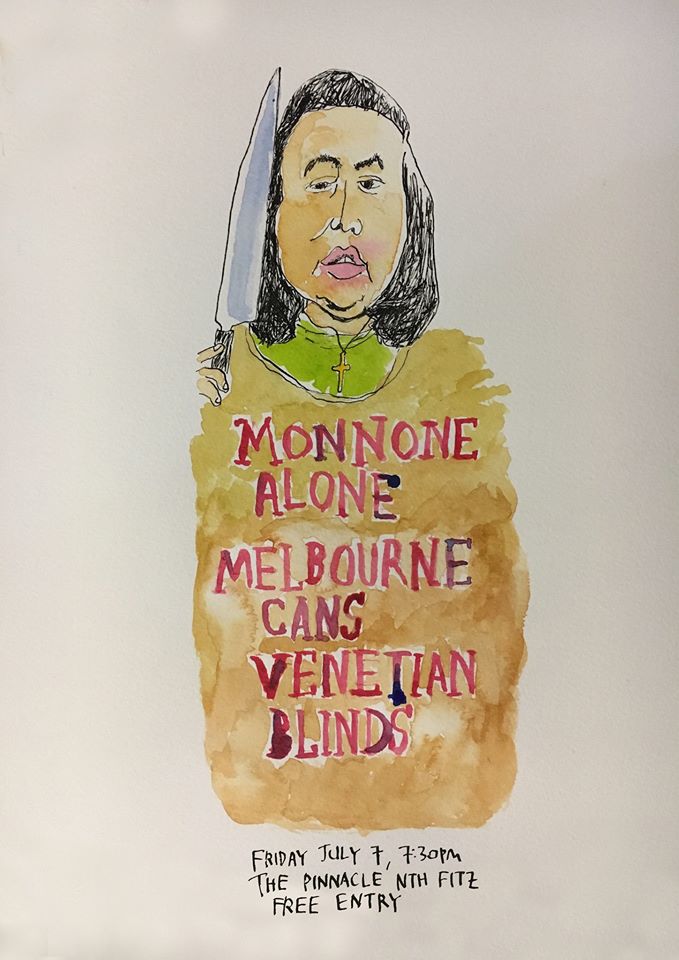 MONNONE
ALONE
MELBOURNE
CANS
VENETIAN
BLINDS
FRIDAY JULY 7, 7:30PM
THE PINNACLE NTH FITZ
FREE ENTRY